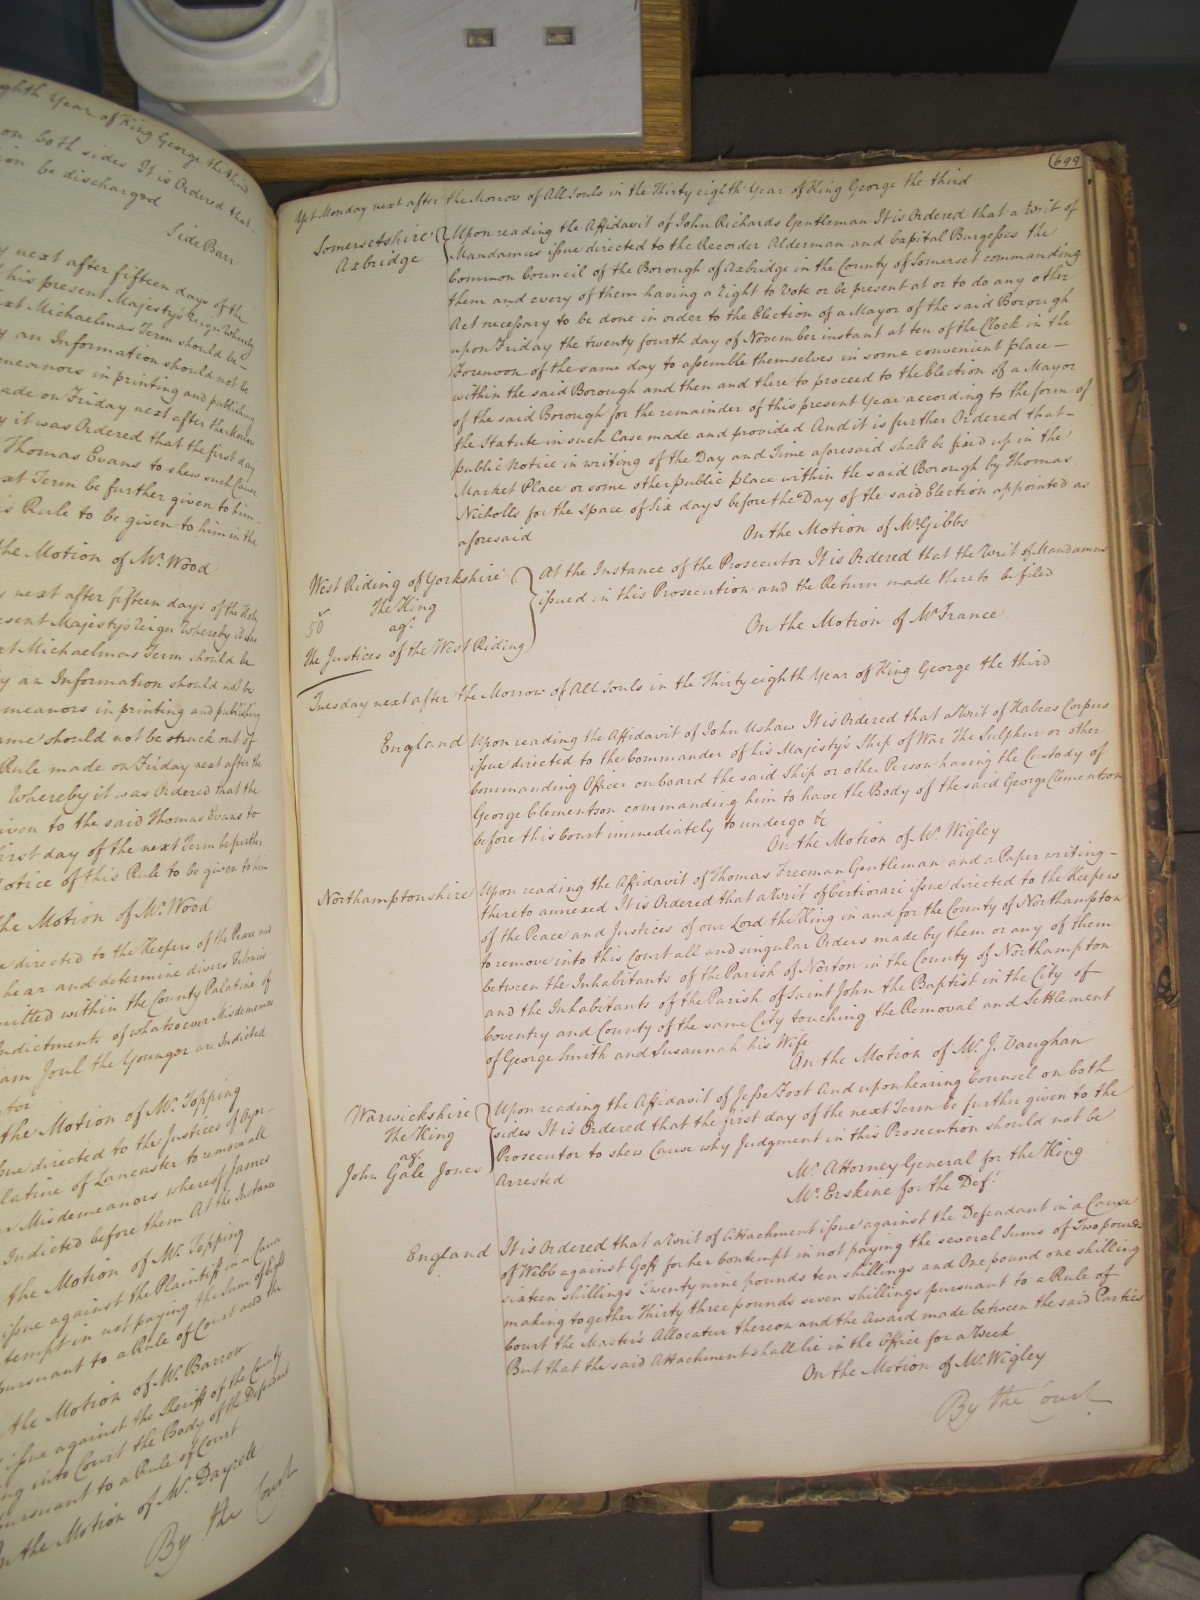 ghth Year of King George the third
on both sides It is Ordered that
ion be discharged
Side Barr
y next after fifteen days of the
his present Majesty's Reign Whereby
xt Michaelmas Term should be
y an Information should not be
meanors in printing and publishing
ade on Friday next after the Morrow
y it was Ordered that the first day
Thomas Evans to shew such Cause
xt Term be further given to him
is Rule to be given to him in the
the Motion of Mr. Wood
y next after fifteen days of the Holy
esent Majesty's Reign Whereby it was
xt Michaelmas Term should be
y an Information should not be
meanors in printing and publishing
ame should not be struck out of
Rule made on Friday next after the
Whereby it was Ordered that the
iven to the said Thomas Evans to
first day of the next Term be further
Notice of this Rule to be given to him
the Motion of Mr. Wood
e directed to the Keepers of the Peace and
hear and determine divers Felonies
mitted within the County Palatine of
Indictments of whatsoever Misdemeanors
iam Joul the Younger are Indicted
tor
the Motion of Mr. Topping
sue directed to the Justices of Oyer
latine of Lancaster to remove all
r Misdemeanors whereof James
Indicted before them At the Instance
the Motion of Mr. Topping
issue against the Plaintiff in a Cause
tempt in not paying the Sum of Eight
pursuant to a Rule of Court and the
the Motion of Mr. Barrow
issue against the Sheriff of the County
ng into Court the Body of the Defendant
pursuant to a Rule of Court
On the Motion of Mr. Dayrell
By the Court
699
Yet Monday next after the Morrow of All Souls in the Thirty eighth Year of King George the third
Somersetshire Upon reading the Affidavit of John Richards Gentleman It is Ordered that a Writ of
Axbridge Mandamus issue directed to the Recorder Alderman and Capital Burgesses the
Common Council of the Borough of Axbridge in the County of Somerset commanding
them and every of them having a Right to Vote or be present at or to do any other
Act necessary to be done in order to the Election of a Mayor of the said Borough
upon Friday the twenty fourth day of November instant at ten of the Clock in the
Forenoon of the same day to assemble themselves in some convenient place
within the said Borough and then and there to proceed to the Election of a Mayor
of the said Borough for the remainder of this present Year according to the form of
the Statute in such Case made and provided And it is further Ordered that
public Notice in writing of the Day and Time aforesaid shall be fixed up in the
Market Place or some other public Place within the said Borough by Thomas
Nicholls for the Space of Six days before the Day of the said Election appointed as
aforesaid
On the Motion of Mr. Gibbs
West Riding of Yorkshire At the Instance of the Prosecutor It is Ordered that the Writ of Mandamus
The King issued in this Prosecution and the Return made thereto be filed
50 agt.
The Justices of the West Riding
On the Motion of Mr. France
Tuesday next after the Morrow of All Souls in the Thirty eighth Year of King George the third
England Upon reading the Affidavit of John Ushaw It is Ordered that a Writ of Habeas Corpus
issue directed to the Commander of his Majesty's Ship of War The Sulphur or other
Commanding Officer on board the said Ship or other Person having the Custody of
George Clementson commanding him to have the Body of the said George Clementson
before this Court immediately to undergo &c
On the Motion of Mr. Wigley
Northamptonshire Upon reading the Affidavit of Thomas Freeman Gentleman and a Paper writing
thereto annexed It is Ordered that a Writ of Certiorari issue directed to the Keepers
of the Peace and Justices of our Lord the King in and for the County of Northampton
to remove into this Court all and singular Orders made by them or any of them
between the Inhabitants of the Parish of Norton in the County of Northampton
and the Inhabitants of the Parish of Saint John the Baptist in the City of
Coventry and County of the same City touching the Removal and Settlement
of George Smith and Susannah his Wife
On the Motion of Mr. J. Vaughan
Warwickshire Upon reading the Affidavit of Jesse Foot And upon hearing Counsel on both
The King sides It is Ordered that the first day of the next Term be further given to the
agt. Prosecutor to shew Cause why Judgment in this Prosecution should not be
John Gale Jones Arrested
Mr. Attorney General for the King
Mr. Erskine for the Deft.
England It is Ordered that a Writ of Attachment issue against the Defendant in a Cause
of Webb against Goft for her Contempt in not paying the several Sums of Two pounds
sixteen shillings Twenty nine pounds ten shillings and One pound one shilling
making together Thirty three pounds seven shillings pursuant to a Rule of
Court the Master's Allocatur thereon and the Award made between the said Parties
But that the said Attachment shall lie in the Office for a Week
On the Motion of Mr. Wigley
By the Court